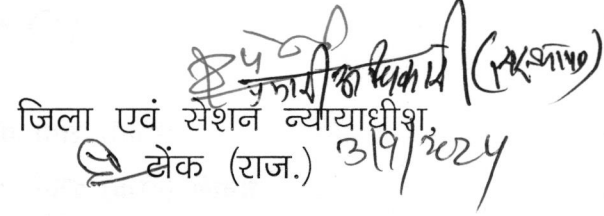 प्रभारी अधिकारी (संस्थापन)
जिला एवं सेशन न्यायाधीश,
टोंक (राज.) 3/9/2024